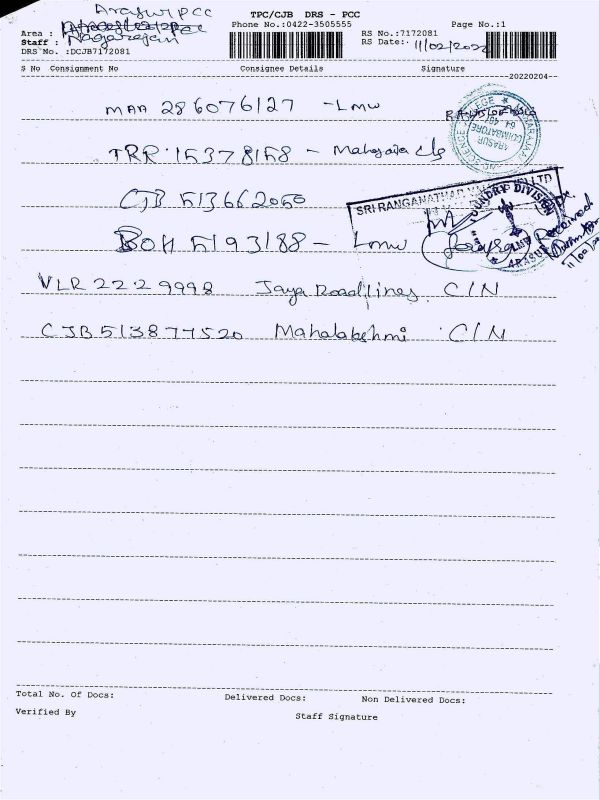 Arasur PCC
TPC/CJB DRS - PCC
Area :
Phone No.:0422-3505555
Page No.:1
Staff : Nagarajan
RS No.:7172081
DRS No. :DCJB7172081
RS Date:. 11/02/2022
S No Consignment No Consignee Details Signature
20220204
MAA 286076127 - Lmw
TRR 15378158 - Maharaja clg
CJB 513662050
BOM 5193188 - Lmw
VLR 2229998 Jaya Roadlines C/N
CJB 513877520 Mahalakshmi C/N
ARASUR
COIMBATORE
SRI RANGANATHAR
LTD
FOUNDRY DIVISION
ARASUR
Received
Total No. Of Docs: Delivered Docs: Non Delivered Docs:
Verified By Staff Signature